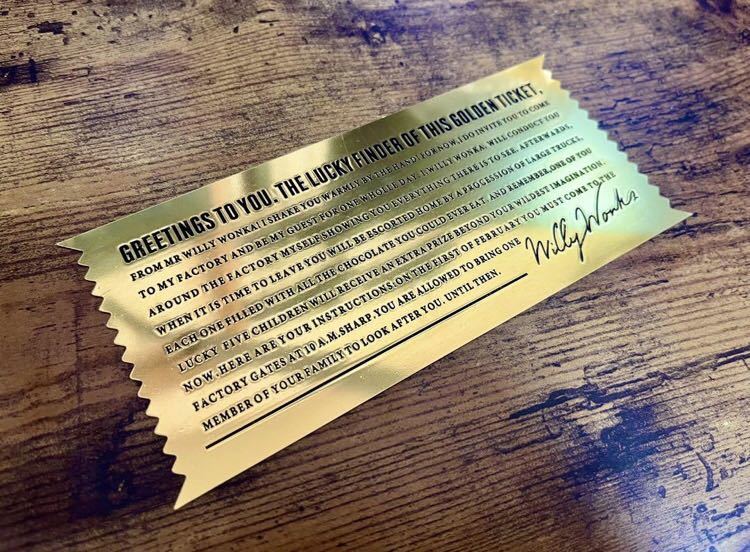 GREETINGS TO YOU. THE LUCKY FINDER OF THIS GOLDEN TICKET,
FROM MR WILLY WONKA! I SHAKE YOU WARMLY BY THE HAND! FOR NOW, I DO INVITE YOU TO COME
TO MY FACTORY AND BE MY GUEST FOR ONE WHOLLE DAY. I, WILLY WONKA, WILL CONDUCT YOU
AROUND THE FACTORY MYSELF SHOWING YOU EVERYTHING THERE IS TO SEE. AFTERWARDS,
WHEN IT IS TIME TO LEAVE YOU WILL BE ESCORTED HOME BY A PROGESSION OF LARGE TRUCKS,
EACH ONE FILLED WITH ALL THE CHOCOLATE YOU COULD EVER EAT. AND REMEMBER, ONE OF YOU
LUCKY FIVE CHILDREN WILL RECEIVE AN EXTRA PRIZE BEYOND YOUR WILDEST IMAGINATION.
NOW. HERE ARE YOUR INSTRUCTIONS: ON THE FIRST OF FEBRUARY YOU MUST COME TO THE
FACTORY GATES AT 10 A.M. SHARP. YOU ARE ALLOWED TO BRING ONE
MEMBER OF YOUR FAMILY TO LOOK AFTER YOU. UNTIL THEN.
Willy Wonka